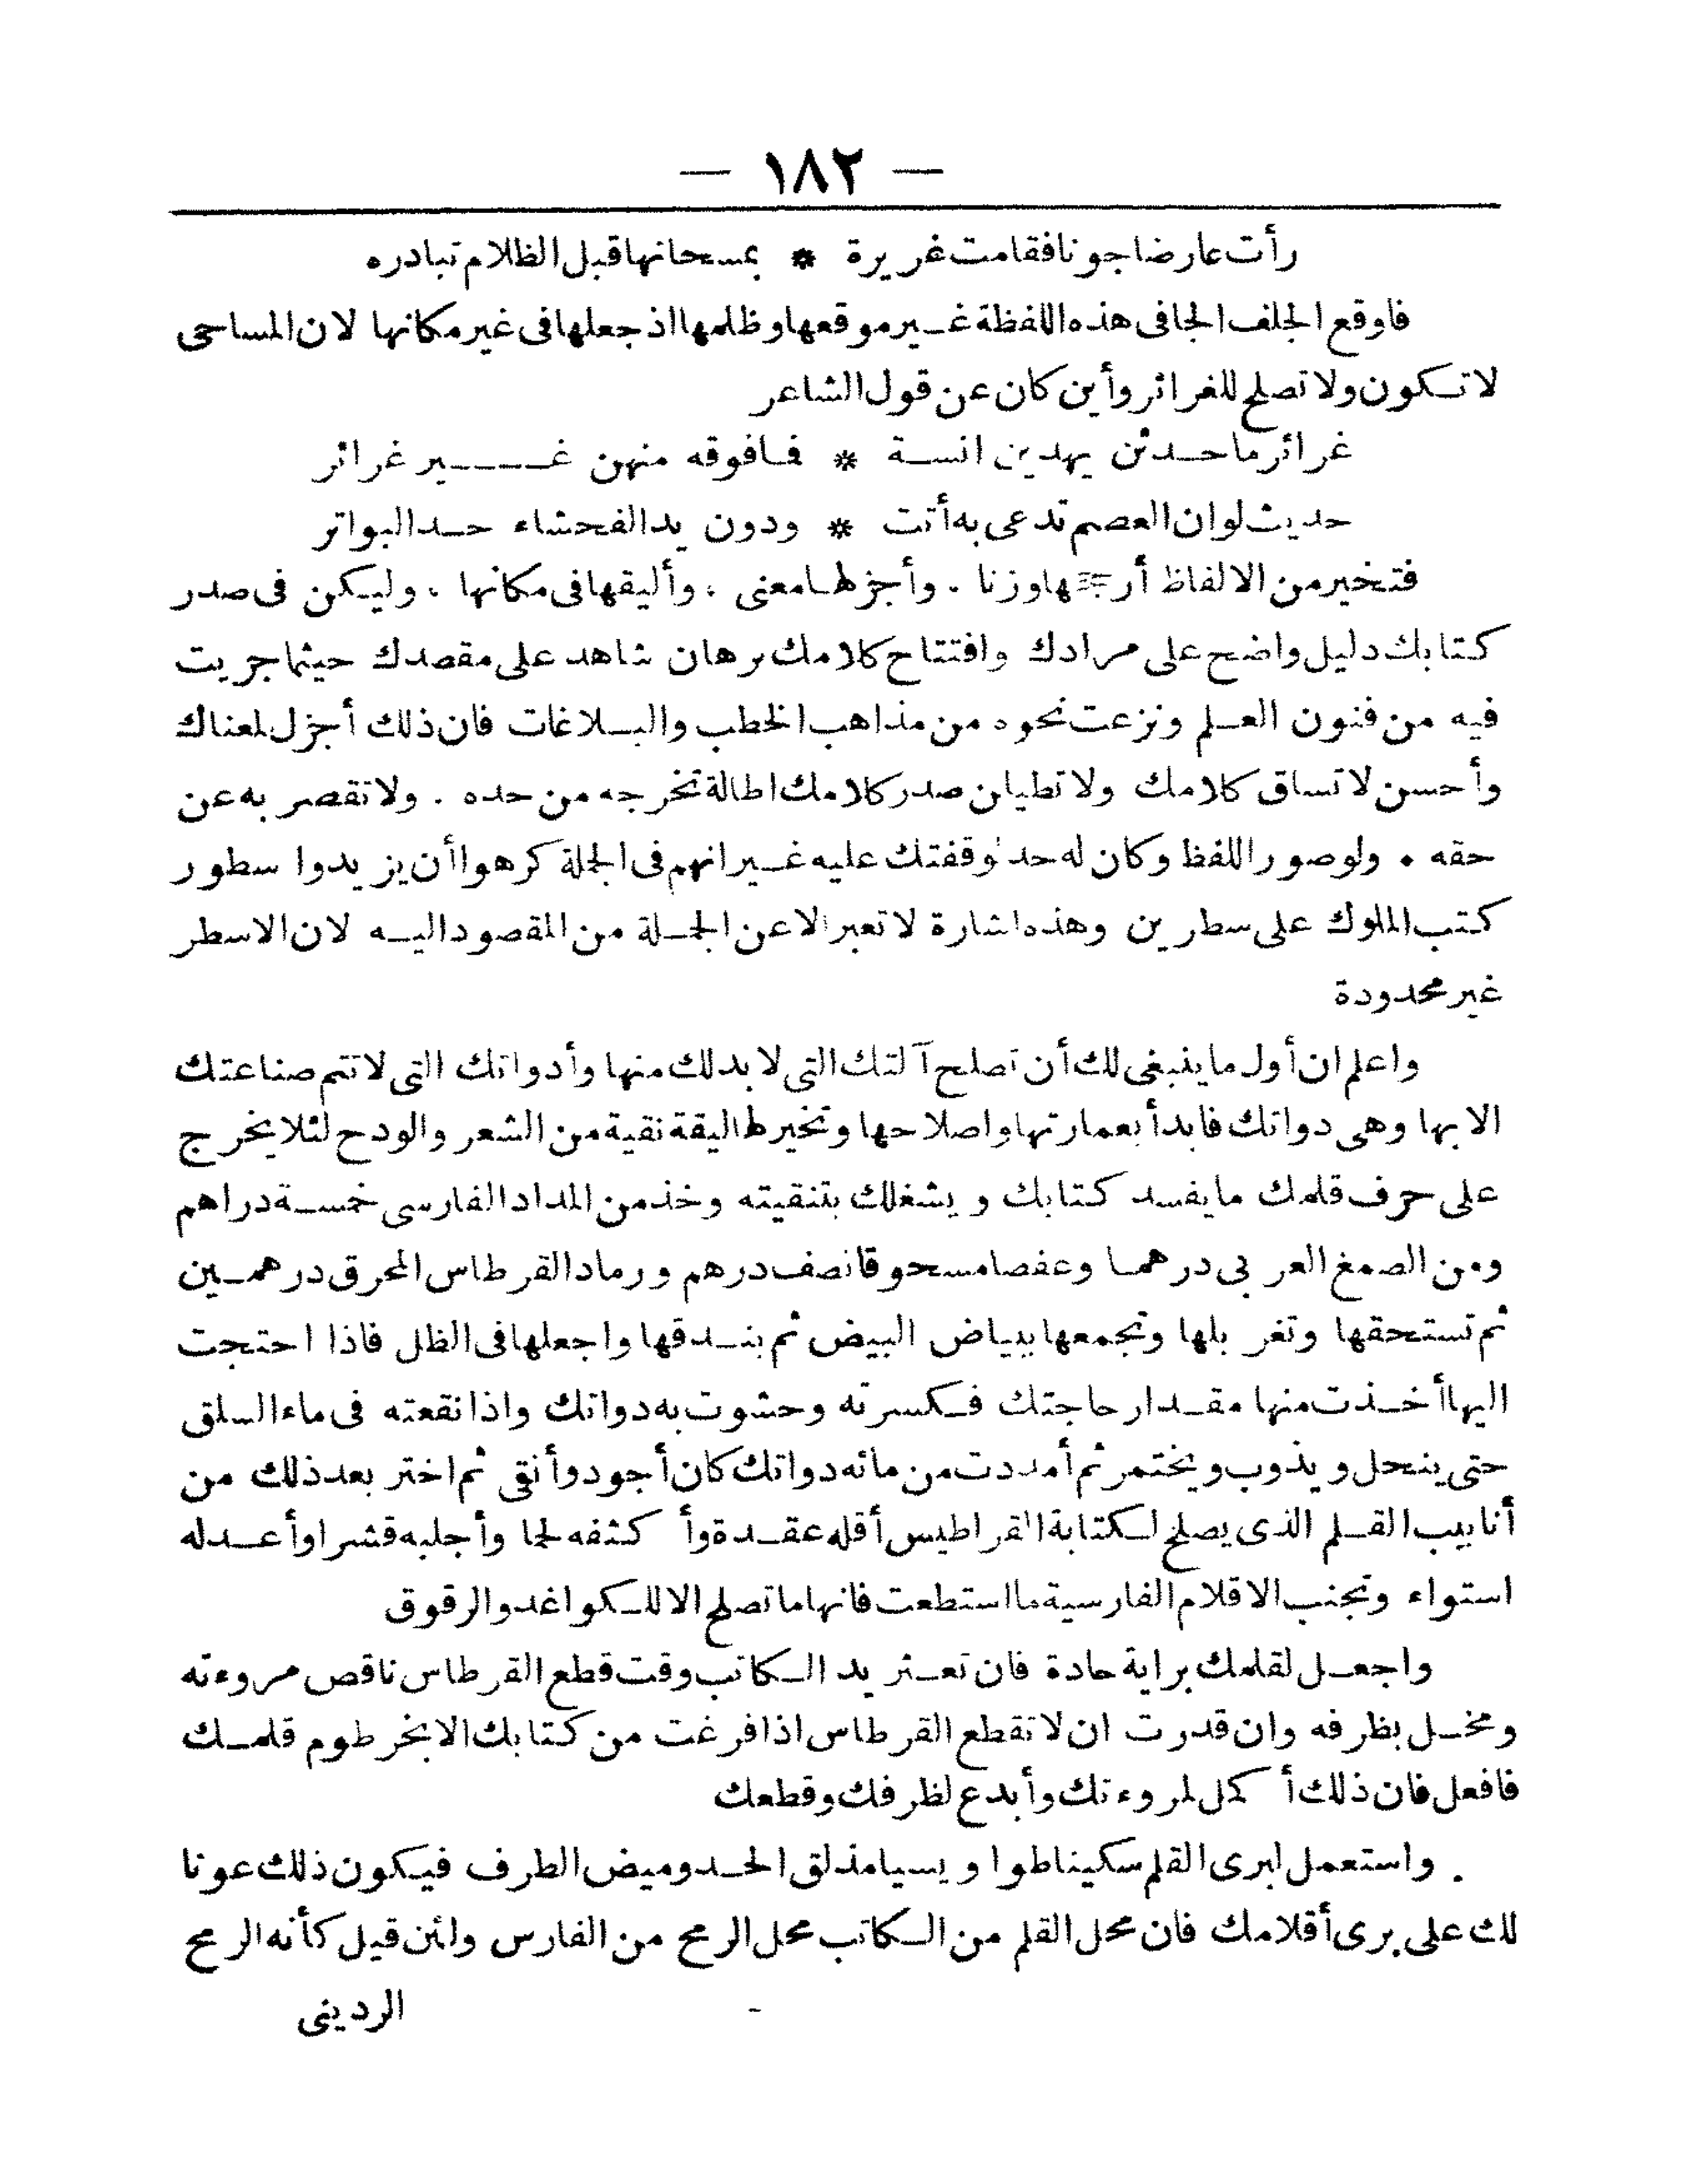 — ١٨٢ —
رأت عارضا جونا فقامت غريرة * بمسحاتها قبل الظلام تبادره
فاوقع الجلف الجافى هذه اللفظة غير موقعها وظلمها اذ جعلها فى غير مكانها لان المساحى
لا تكون ولا تصلح للغرائر وأين كان عن قول الشاعر
غرائر ما حدثن يهدين انسة * فافوقه منهن غير غرائر
حديث لو ان العصم تدعى به أتت * ودون يد الفحشاء حد البواتر
فتخير من الالفاظ أرجحها وزنا . وأجزلها معنى ، وأليقها فى مكانها . وليكن فى صدر
كتابك دليل واضح على مرادك وافتتاح كلامك برهان شاهد على مقصدك حيثما جريت
فيه من فنون العلم ونزعت نحوه من مذاهب الخطب والبلاغات فان ذلك أجزل لمعناك
وأحسن لاتساق كلامك ولا تطيلن صدر كلامك اطالة تخرجه من حده . ولا تقصر به عن
حقه . ولو صور اللفظ وكان له حد لوقفتك عليه غير انهم فى الجملة كرهوا أن يزيدوا سطور
كتب الملوك على سطرين وهذه اشارة لا تعبر الا عن الجملة من المقصود اليه لان الاسطر
غير محدودة
واعلم ان أول ما ينبغى لك أن تصلح آلتك التى لا بد لك منها وأدواتك التى لا تتم صناعتك
الا بها وهى دواتك فابدأ بعمارتها واصلاحها وتخير لها ليقة نقية من الشعر والودح لئلا يخرج
على حرف قلمك ما يفسد كتابك ويشغلك بتنقيته وخذ من المداد الفارسى خمسة دراهم
ومن الصمغ العربى درهما وعفصا مسحوقا نصف درهم ورماد القرطاس المحرق درهمين
ثم تستحقها وتغربلها وتجمعها ببياض البيض ثم بندقها واجعلها فى الظل فاذا احتجت
اليها أخذت منها مقدار حاجتك فكسرته وحشوت به دواتك واذا نقعته فى ماء السلق
حتى ينحل ويذوب ويختمر ثم أمددت من مائه دواتك كان أجود وأنقى ثم اختر بعد ذلك من
أنابيب القلم الذى يصلح لكتابة القراطيس أقله عقدة وأكثفه لحما وأجلبه قشرا وأعدله
استواء وتجنب الاقلام الفارسية ما استطعت فانها ما تصلح الا للكواغد والرقوق
واجعل لقلمك براية حادة فان تعثر يد الكاتب وقت قطع القرطاس ناقص مروءته
ومخل بظرفه وان قدرت ان لا تقطع القرطاس اذا فرغت من كتابك الا بخرطوم قلمك
فافعل فان ذلك أكمل لمروءتك وأبدع لظرفك وقطعك
. واستعمل لبرى القلم سكينا طواويسيا مذلق الحد وميض الطرف فيكون ذلك عونا
لك على برى أقلامك فان محل القلم من الكاتب محل الرمح من الفارس ولئن قيل كأنه الرمح
الردينى